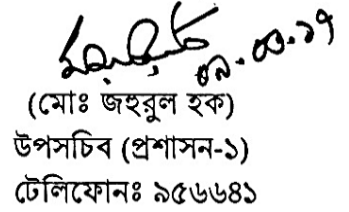 (মোঃ জহুরুল হক)
উপসচিব (প্রশাসন-১)
টেলিফোনঃ ৯৫৬৬৪১